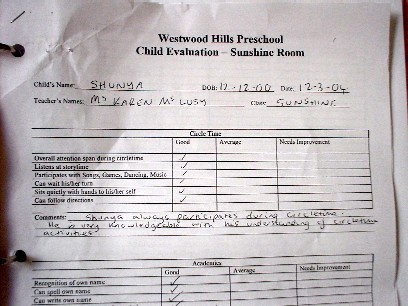 Westwood Hills Preschool
Child Evaluation – Sunshine Room
Child's Name: SHUNYA DOB: 12-12-00 Date: 12-3-04
Teacher's Names: Ms KAREN Ms LUSY Class: SUNSHINE
Circle Time
Good Average Needs Improvement
Overall attention span during circletime ✓
Listens at storytime ✓
Participates with Songs, Games, Dancing, Music ✓
Can wait his/her turn ✓
Sits quietly with hands to his/her self ✓
Can follow directions ✓
Comments: Shunya always participates during circletime.
He is very knowledgeable with his understanding of circletime
activities
Academics
Good Average Needs Improvement
Recognition of own name ✓
Can spell own name ✓
Can write own name ✓